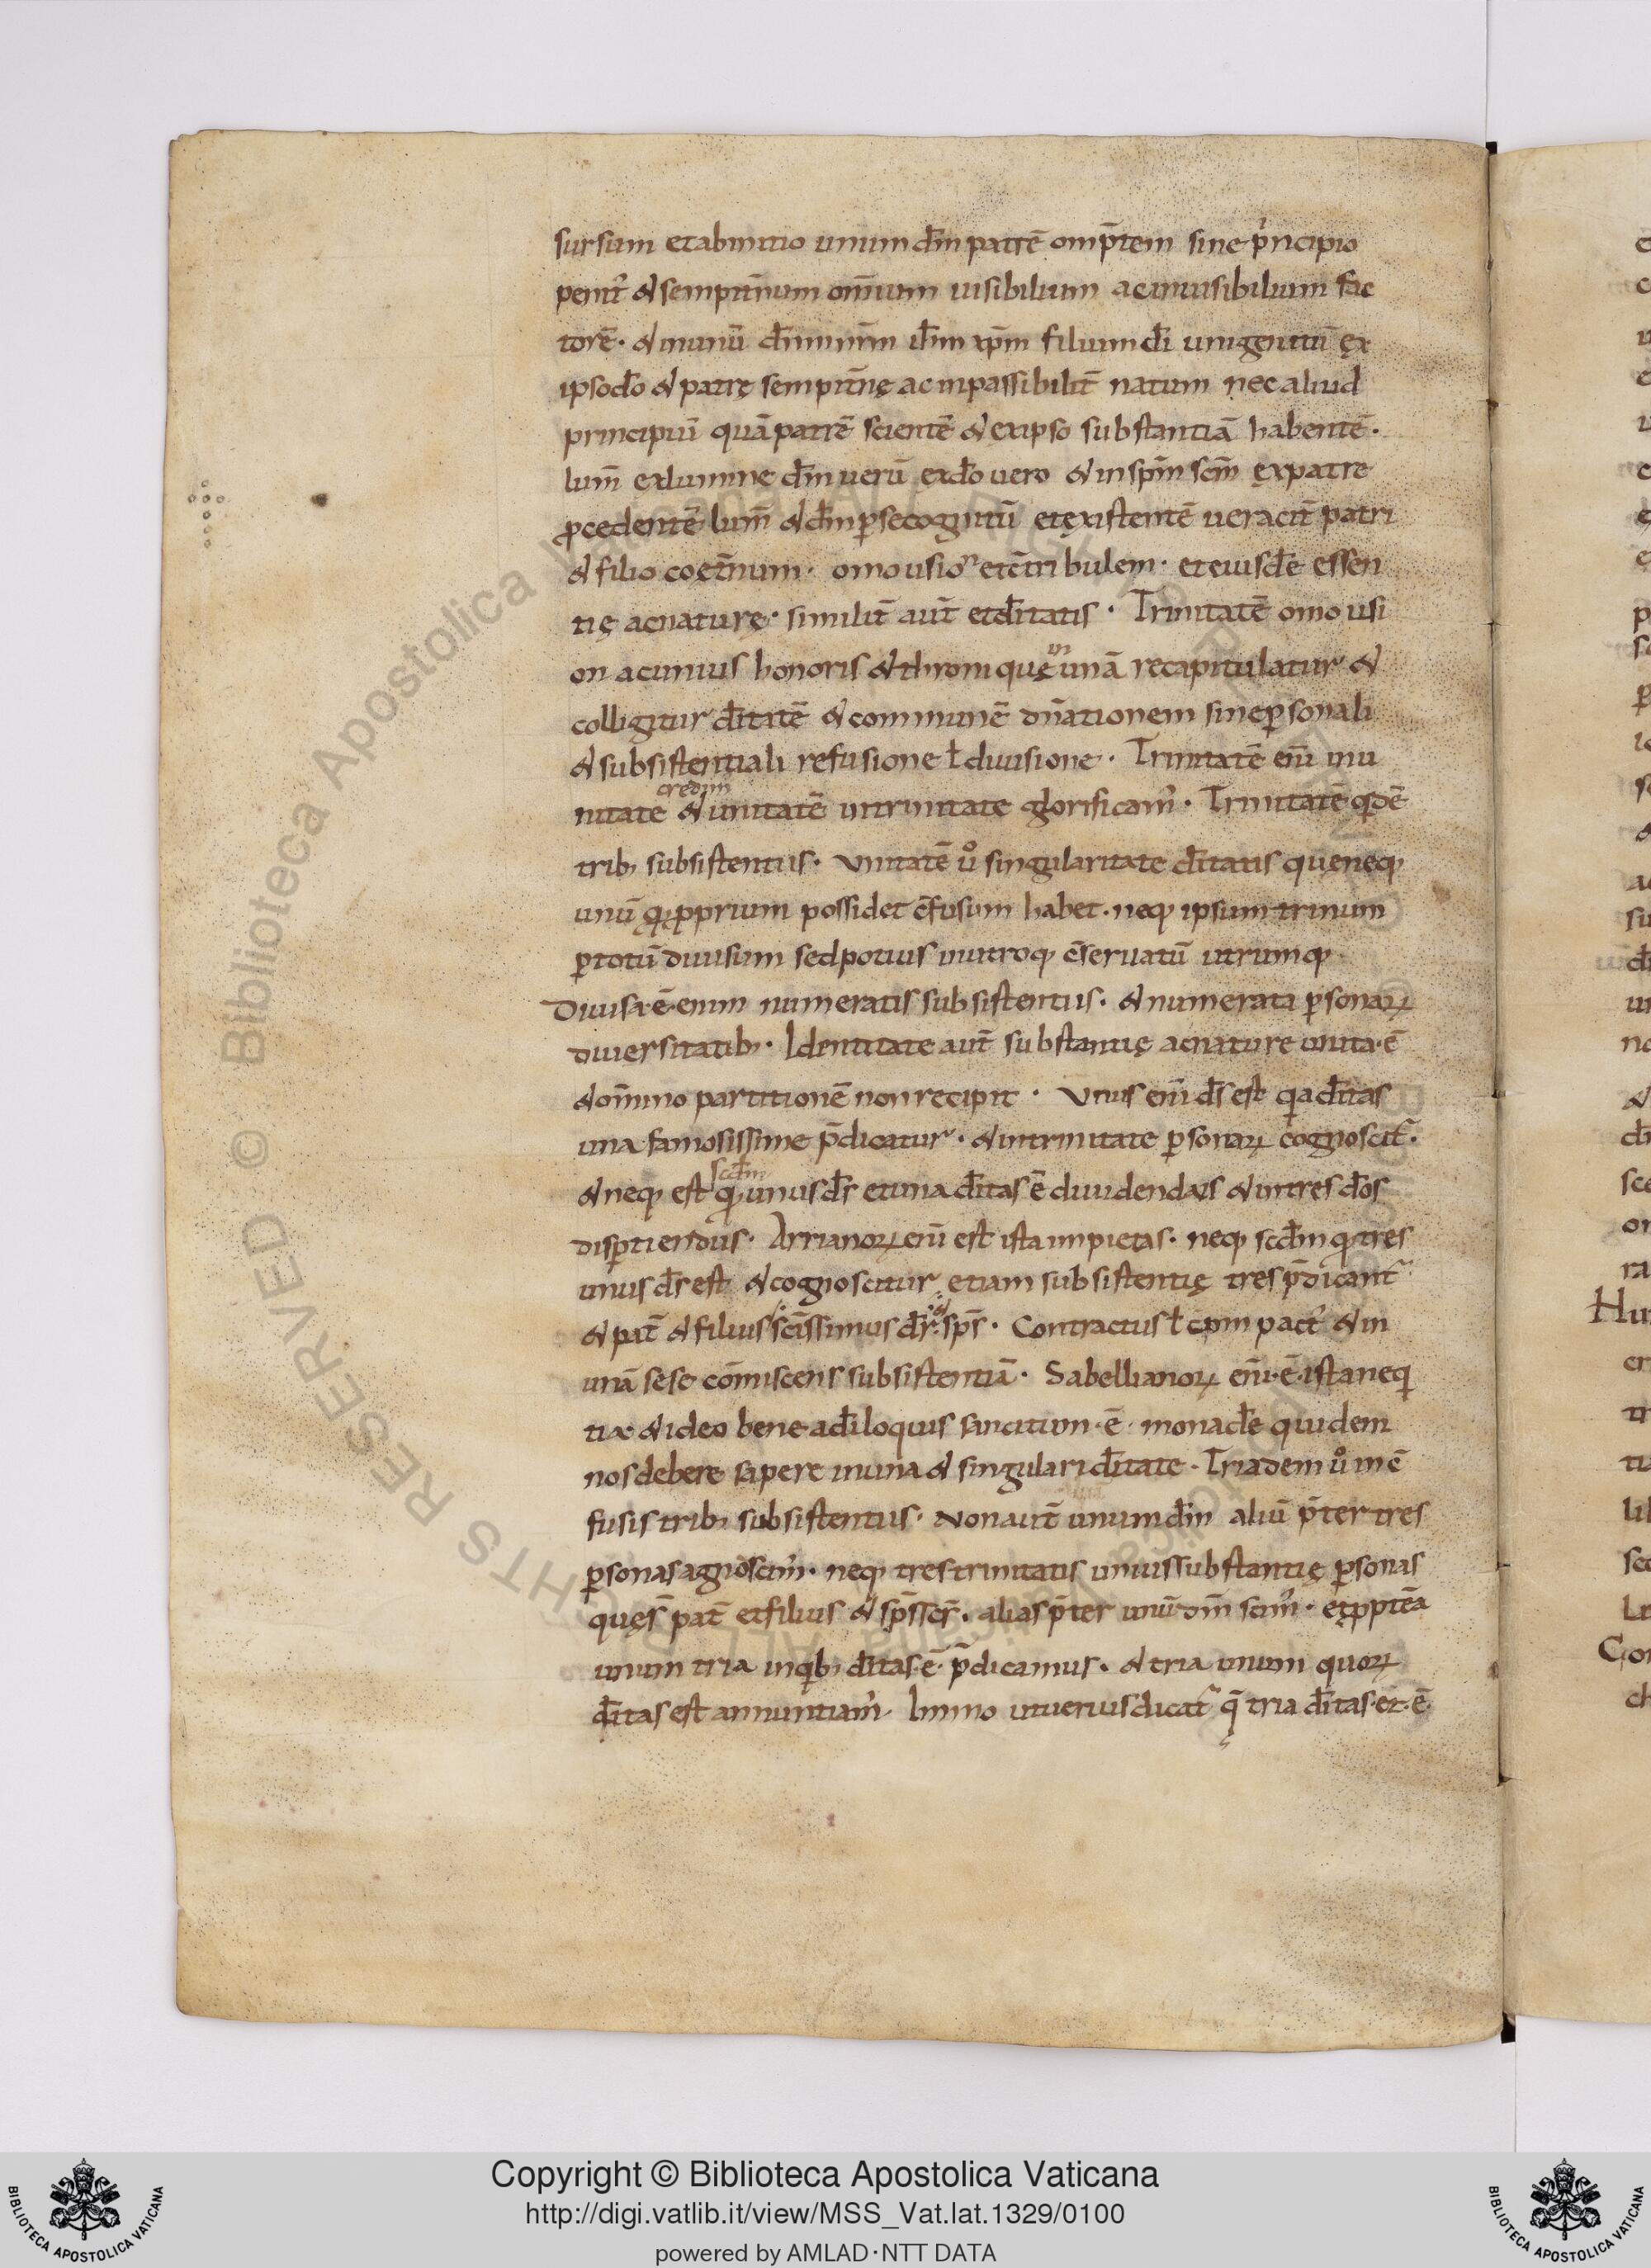 sursum et ab initio unum dm̄ patrē omp̄tem sine pͥncipio
penit᷒ & sempit̄num om̄ium uisibilium ac inuisibilium fac
torē · & in unū dn̄m nr̄m ih̄m xp̄m filium dī unigenitū ex
ipso do̅ & patrę sempit̄nę ac inpassibilit̄ natum nec aliud
principiū quā patrē scientē & ex ipso substantiā habentē ·
lum̄ ex lumine dm̄ uerū ex do̅ uero & in spm̄ scm̄ ex patre
ꝓcedentē lum̄ & dm̄ ꝑ se cognitū et existentē ueracit̄ patri
& filio coęt̄num · omousion et c̄tribulem · et eiusdē essen
tię ac naturę · similit̄ aut̄ et dītatis · Trinitatē omousi
on ac unius honoris & throni quę in unā recapitulatur &
colligitur dītatē & communē dn̄ationem sine ꝑsonali
& subsistentiali refusione ł diuisione · Trinitatē enī in u
nitate credim & unitatē in trinitate glorificam᷒ · Trinitatē qͥdē
trib; subsistentiis · Unitatē u̇ singularitate dītatis quę neq;
unū qd ꝓprium possidet c̄fusum habet · neq; ipsum trinum
ꝑ totū diuisum sed potius in utroq; c̄seruatū utrumq;
Diuisa · ē · enim numeratis subsistentiis · & numerata ꝑsonaꝝ
diuersitatib; · Identitate aut̄ substantię ac nature unita · ē
& om̄ino partitionē non recipit · Unus enī ds̄ est qͥa dītas
una famosissime p̄dicatur · & in trinitate ꝑsonaꝝ cognoscit᷑ ·
& neq; est scdm̄ qd unus ds̄ et una dītas ē diuidendus & in tres dos̄
disꝑtiendus · Arrianoꝝ enī est ista impietas · neq; scdm̄ qd tres
unus ds̄ est & cognoscitur etiam subsistentię tres p̄dicant᷑
& pat̄ & filius & sc̄issimus ds̄ · sps̄ · Contractus ł c̄punpact᷒ & in
unā sese com̄iscens subsistentiā · Sabellianoꝝ enī · ē · ista neqͥ
tia & ideo bene a dīloquis sancitum · ē · monade quidem
nos debere sapere in una & singulari dītate · Triadem u̇ in c̄
fusis trib; subsistentiis · Non aut̄ unum dm̄ aliū p̄ter tres
ꝑsonas agnoscim᷒ · neq; tres trinitatis unius substantię ꝑsonas
quę s̄ pat̄ et filius & sps̄ scs̄ · alias p̄ter unū dm̄ scim᷒ · et ꝓptēa
unum tria in qͥb; dītas · ē · p̄dicamus · & tria unum quoꝝ
dītas est annuntiam᷒ · Immo ut uerius dicat᷑ q̄ tria dītas · et · ē ·
Copyright © Biblioteca Apostolica Vaticana
http://digi.vatlib.it/view/MSS_Vat.lat.1329/0100
powered by AMLAD·NTT DATA